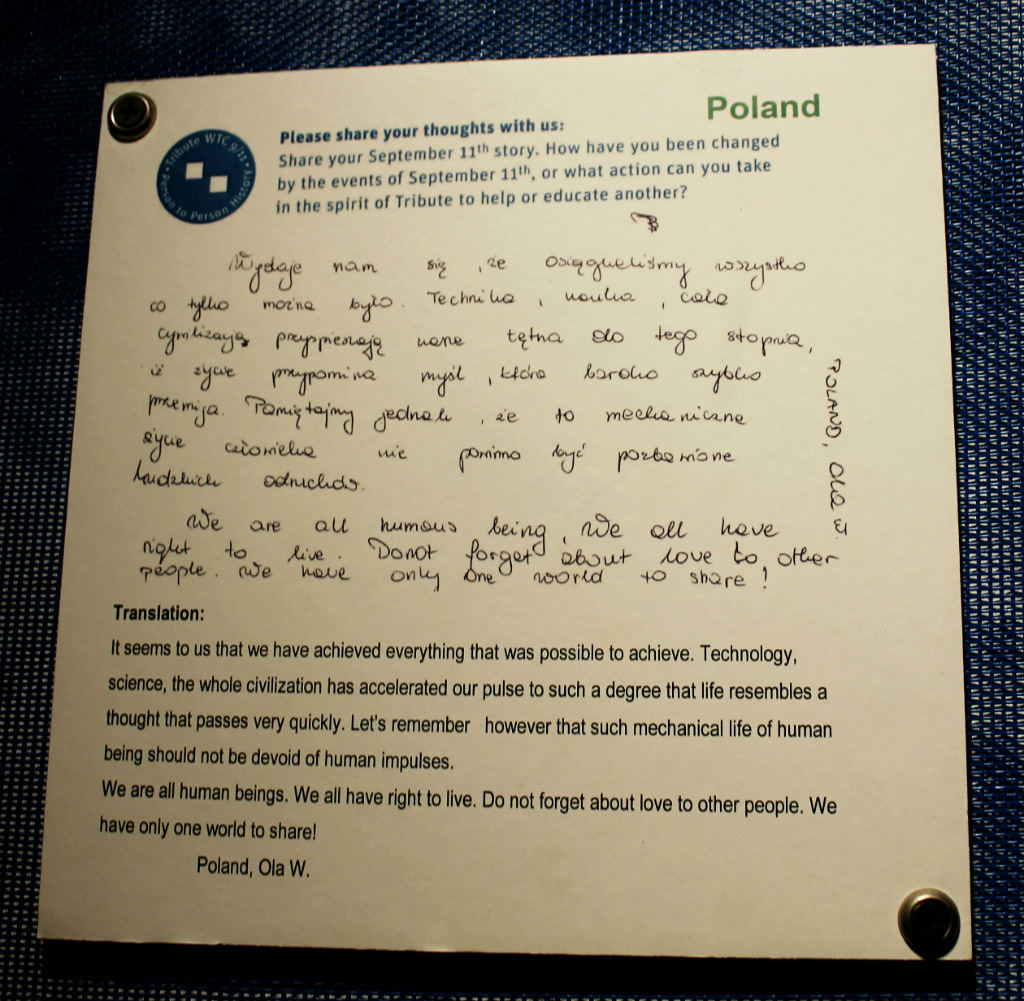 Poland
Tribute WTC 9/11 • Person to Person History •
Please share your thoughts with us:
Share your September 11th story. How have you been changed
by the events of September 11th, or what action can you take
in the spirit of Tribute to help or educate another?
Wydaje nam się, że osiągneliśmy wszystko
co tylko można było. Technika, nauka, cała
cywilizacja przyspieszają nasze tętna do tego stopnia,
iż życie przypomina myśl, która bardzo szybko
przemija. Pamiętajmy jednak, że to mechaniczne
życie człowieka nie powinno być pozbawione
ludzkich odruchów.
We are all humous being, We all have
right to live. Donot forget about love to other
people. We have only one world to share!
POLAND, Ola W.
Translation:
It seems to us that we have achieved everything that was possible to achieve. Technology,
science, the whole civilization has accelerated our pulse to such a degree that life resembles a
thought that passes very quickly. Let's remember however that such mechanical life of human
being should not be devoid of human impulses.
We are all human beings. We all have right to live. Do not forget about love to other people. We
have only one world to share!
Poland, Ola W.